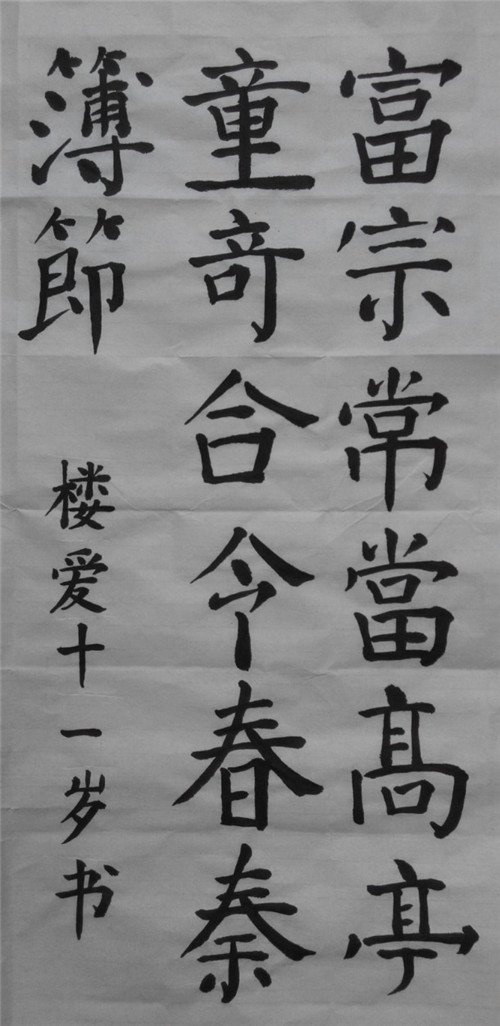 富宗常當髙亭
童奇合令春秦
簿節
楼爱十一岁书